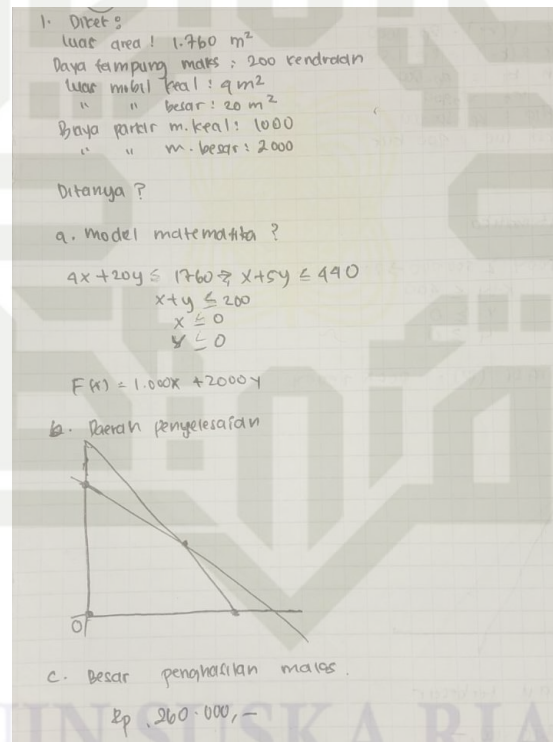 1. Diket :
luas area : 1.760 m²
Daya tampung maks : 200 kendraan
luas mobil kcal : 4 m²
" " besar : 20 m²
Biaya parkir m. kcal : 1000
" " m. besar : 2000
Ditanya ?
a. Model matematika ?
4x + 20y ≤ 1760 => x+5y ≤ 440
x+y ≤ 200
x ≤ 0
y ≤ 0
F(x) = 1.000x + 2000y
b. Daerah penyelesaian
0
c. Besar penghasilan maks.
Rp .260.000,-
UIN SUSKA RIA